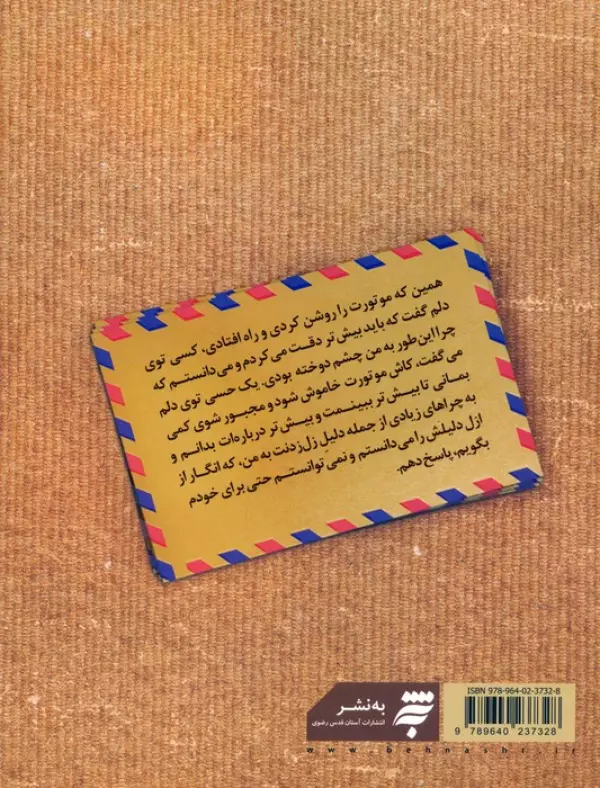 همین که موتورت را روشن کردی و راه افتادی، کسی توی
دلم گفت که باید بیش‌تر دقت می‌کردم و می‌دانستم که
چرا این‌طور به من چشم دوخته بودی. یک حسی توی دلم
می‌گفت، کاش موتورت خاموش شود و مجبور شوی کمی
بمانی تا بیش‌تر ببینمت و بیش‌تر درباره‌ات بدانم و
به چراهای زیادی از جمله دلیلِ زل‌زدنت به من، که انگار از
ازل دلیلش را می‌دانستم و نمی‌توانستم حتی برای خودم
بگویم، پاسخ دهم.
به‌نشر
انتشارات آستان قدس رضوی
ISBN 978-964-02-3732-8
9 789640 237328
www.behnashr.ir